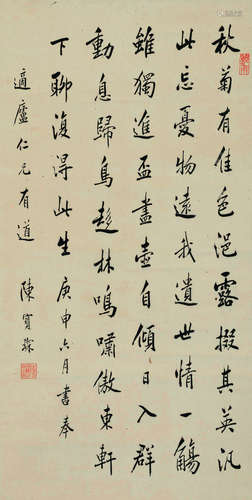 秋菊有佳色浥露掇其英汎
此忘憂物遠我遺世情一觴
雖獨進盃盡壺自傾日入群
動息歸鳥趍林鳴嘯傲東軒
下聊復得此生 庚申六月書奉
適廬仁兄有道 陳寶琛